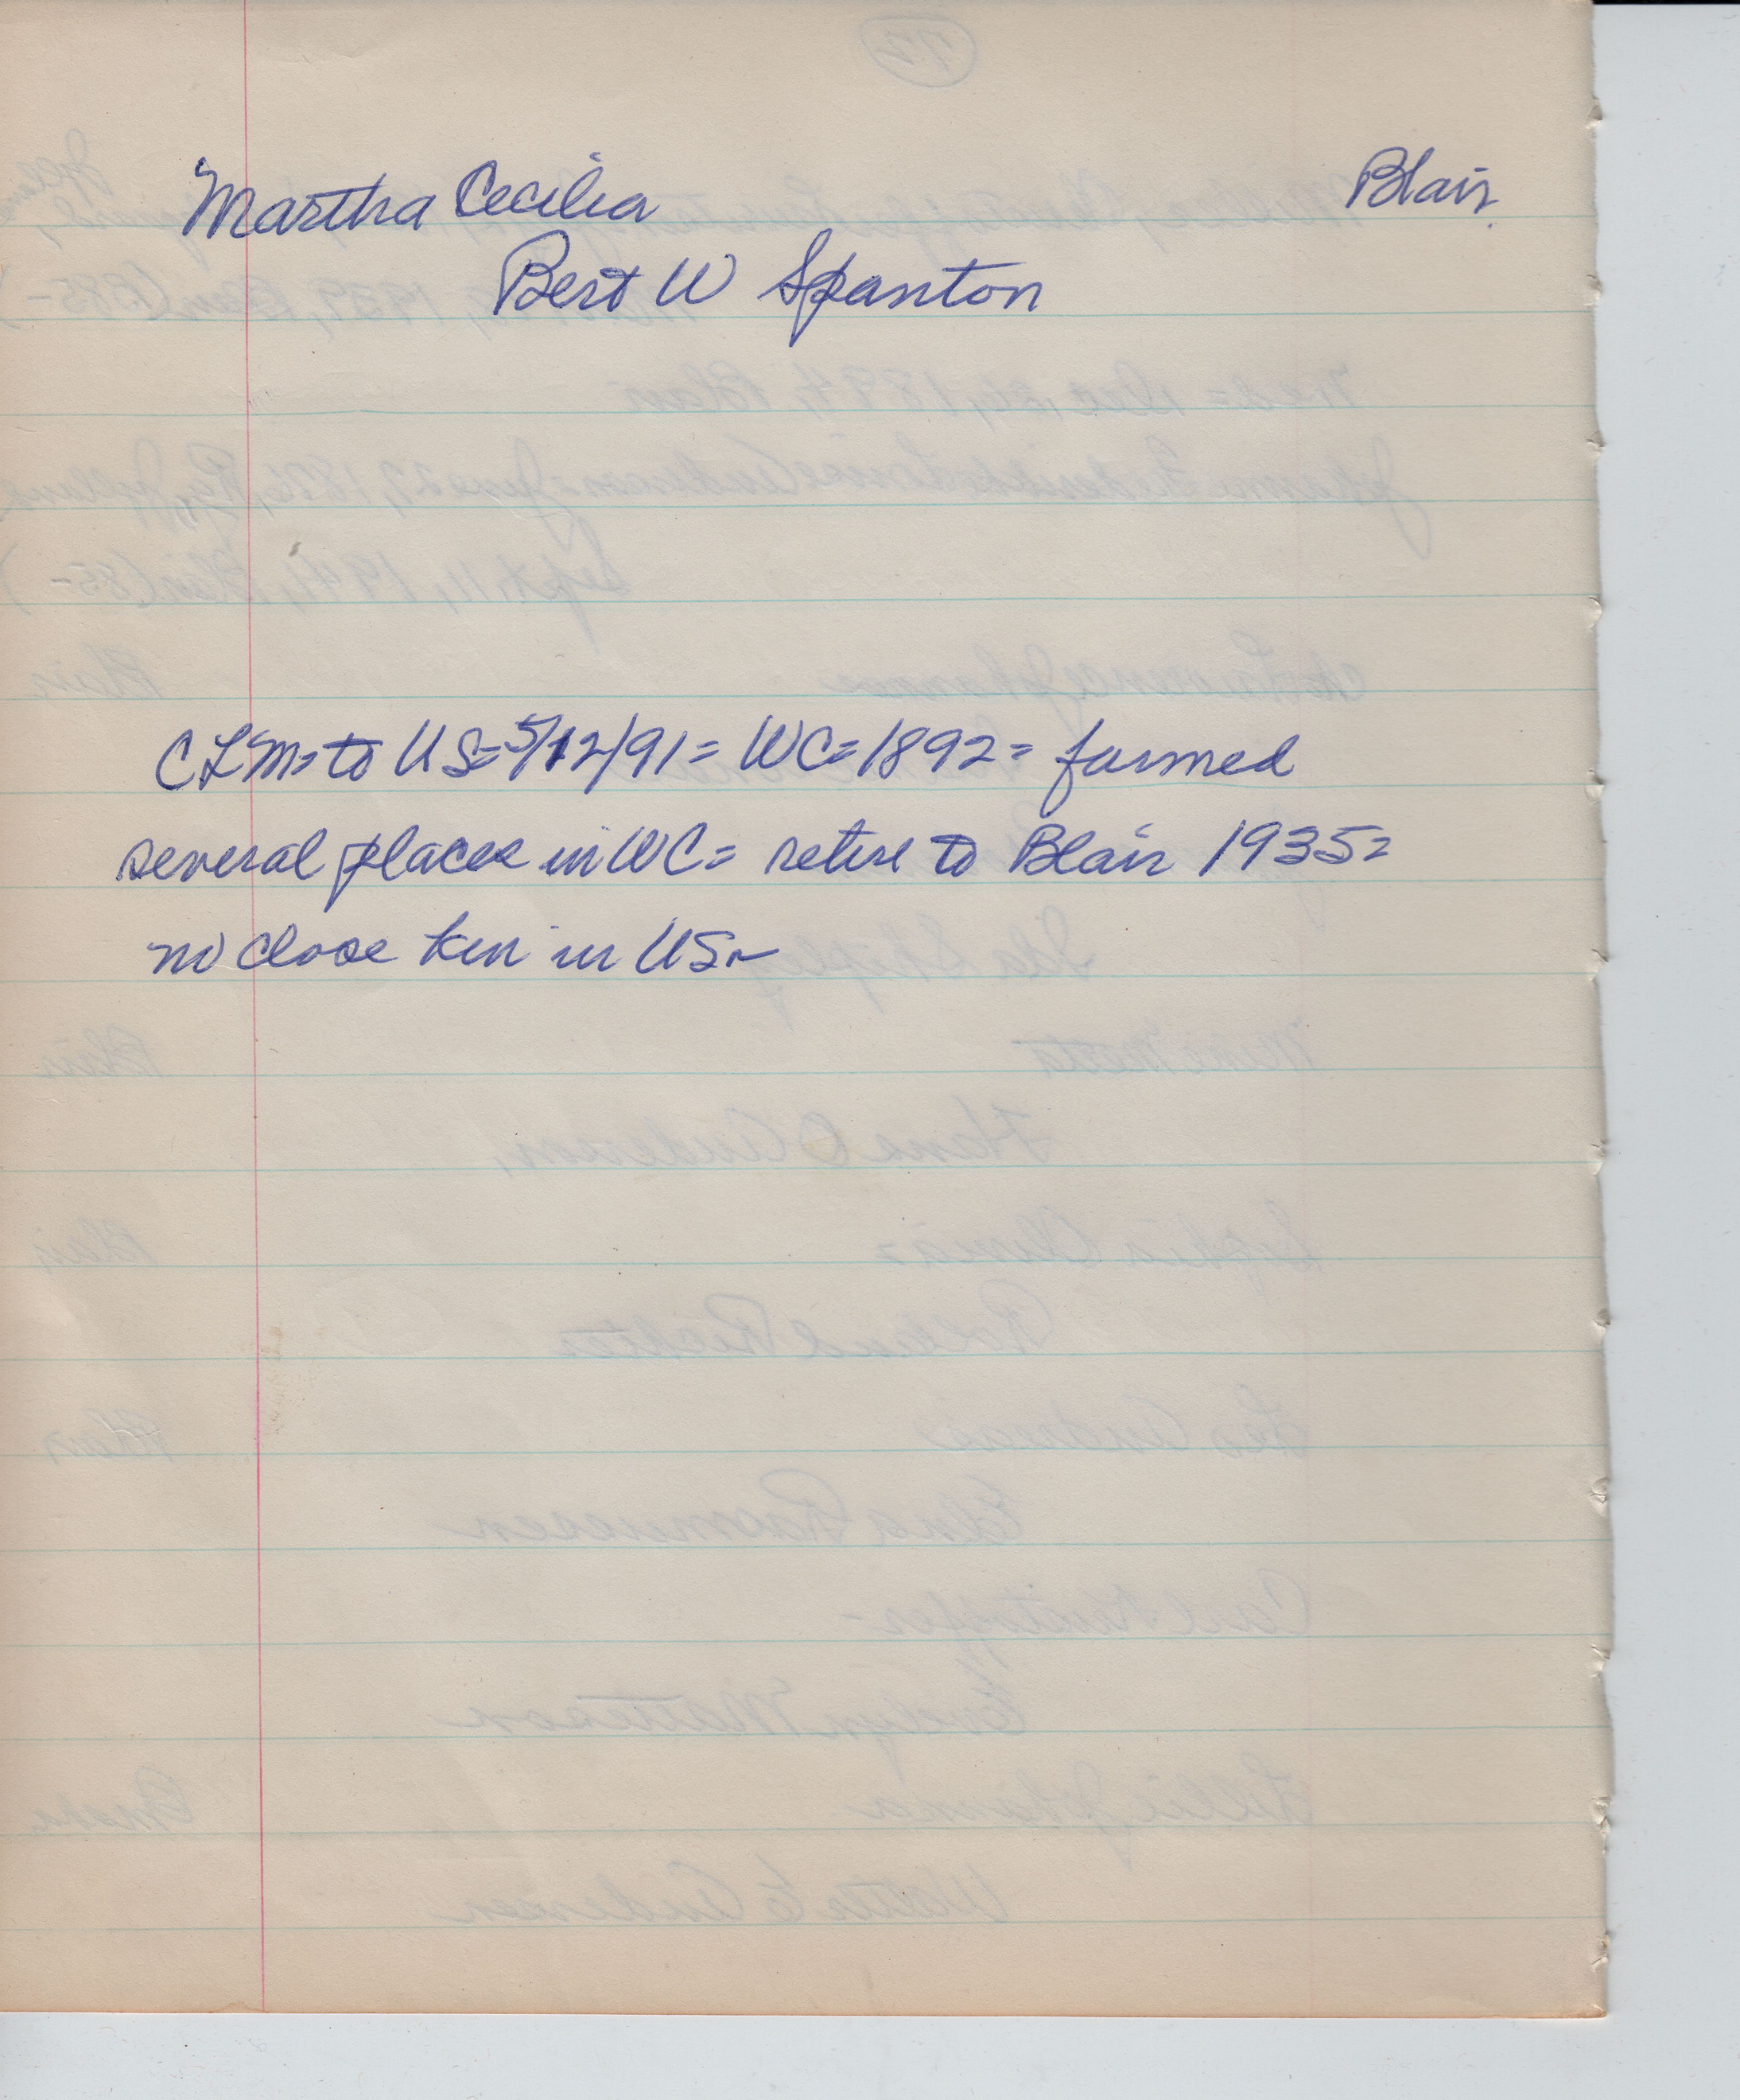 Martha Cecilia Blair.
Bert W Spanton
CLM= to US= 5/12/91= WC= 1892= farmed
several places in WC= retire to Blair 1935=
no close kin in US~